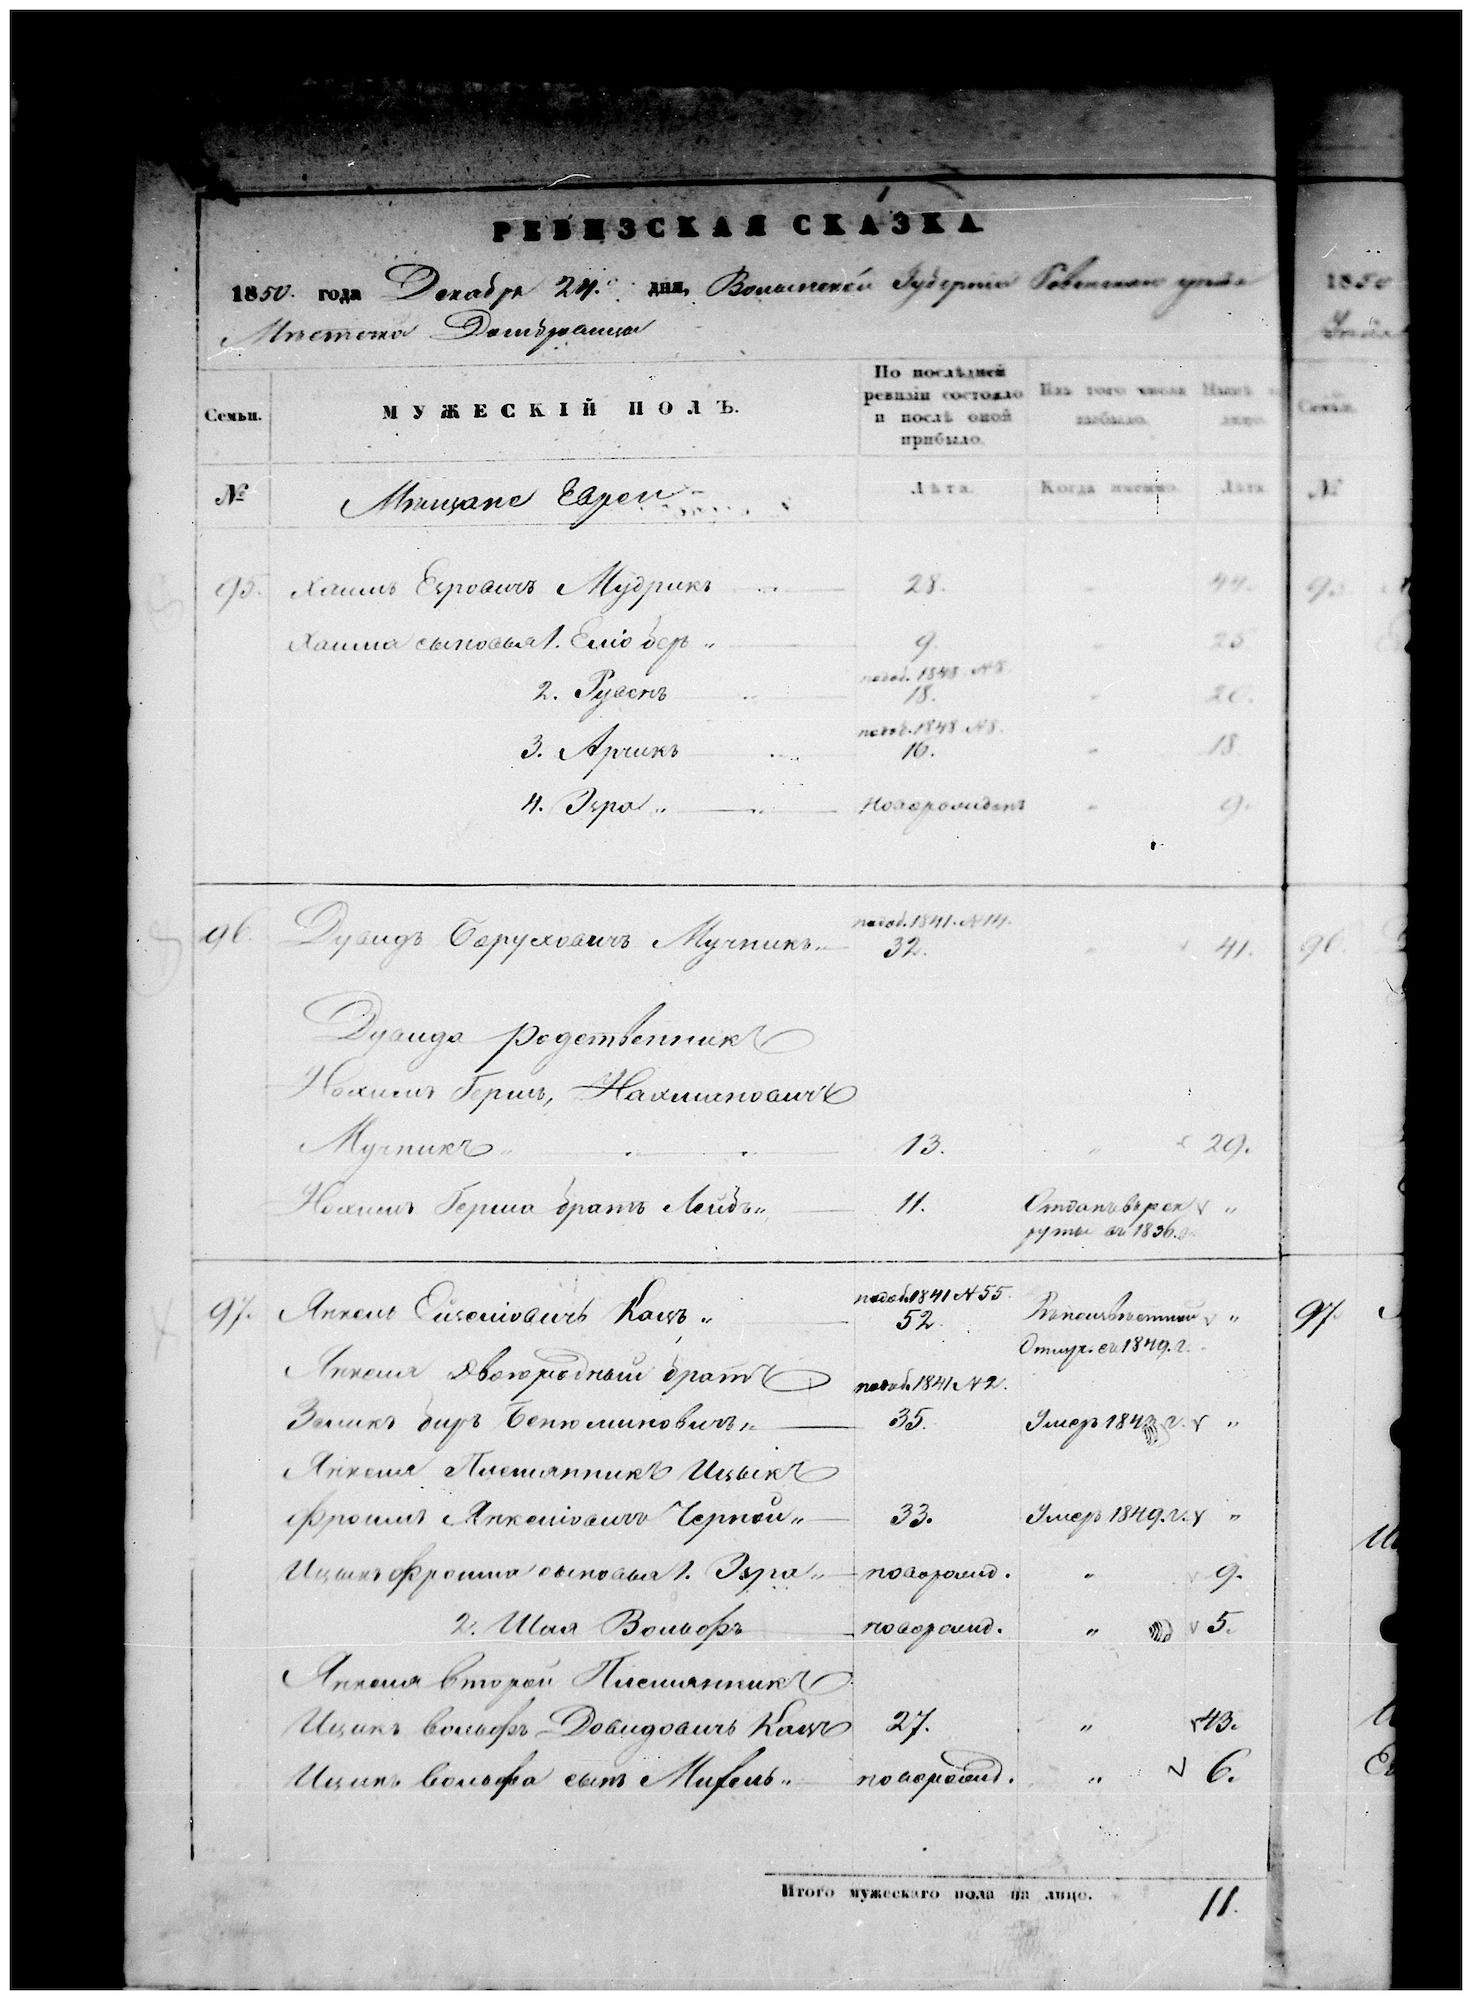 РЕВИЗСКАЯ СКАЗКА
1850. года Декабря 24. дня, Волынской Губернии Ровенского уезда
Местечка Домбровица
Семьи.
МУЖЕСКІЙ ПОЛЪ.
По послѣдней ревизіи состояло и послѣ оной прибыло.
Изъ того числа выбыло.
Нынѣ
лицо.
№
Мещане Евреи
Лѣта.
Когда именно.
Лѣта
95. Хаимъ Есровичъ Мудрикъ 28. " 44.
Хаима сыновья 1. Еліо беръ " 9. " 25
2. Рувенъ " 18. " 20.
1848 №8.
3. Арчикъ " 16. " 18.
1848 №8.
4. Эзра " новорожденъ " 9.
96. Дувидъ Баруховичъ Мучникъ " 32. " 41.
1841. №14.
Дувида родственникъ
Нохимъ Гершъ, Нахмановичъ
Мучникъ " 13. " 29.
Нохимъ Герша братъ Лейбъ " 11. Отданъ въ рек "
руты въ 1836.
97. Янкель Ейзеліовичъ Кацъ " 52. "
1841 №55.
Отлуч. съ 1849. г.
Янкеля двоюродный братъ
1841 №2.
Зеликъ беръ Бенюминовичъ " 35. Умеръ 1843 г. "
Янкеля Племянникъ Ицыкъ
фроимъ Янкеліовичъ Черной " 33. Умеръ 1849. г. "
Ицыкъ фроима сыновья 1. Эзра " новорожд. " 9.
2. Шая Вольфъ новорожд. " 5.
Янкеля второй Племянникъ
Ицикъ вольфъ Довидовичъ Кацъ 27. " 43.
Ицикъ вольфа сынъ " новорожд. " 6.
Итого мужескаго пола на лицо. 11.
1850
Семьи.
№
95.
96.
97.